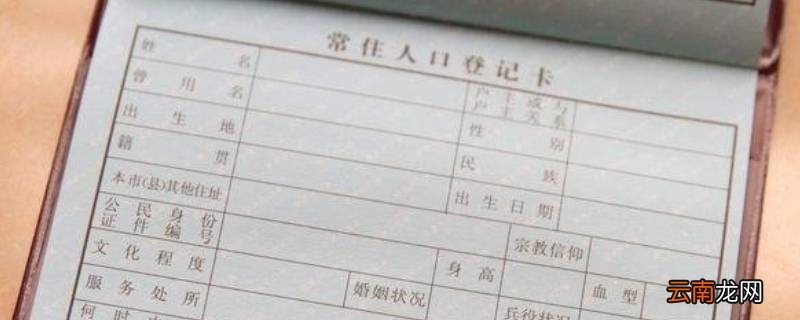 常住人口登记卡
姓名 户主或与户主关系
曾用名 性别
出生地 民族
籍贯 出生日期
本市(县)其他住址 宗教信仰
公民身份证件编号 身高 血型
文化程度 婚姻状况 兵役状况
服务处所
何时由
云南龙网